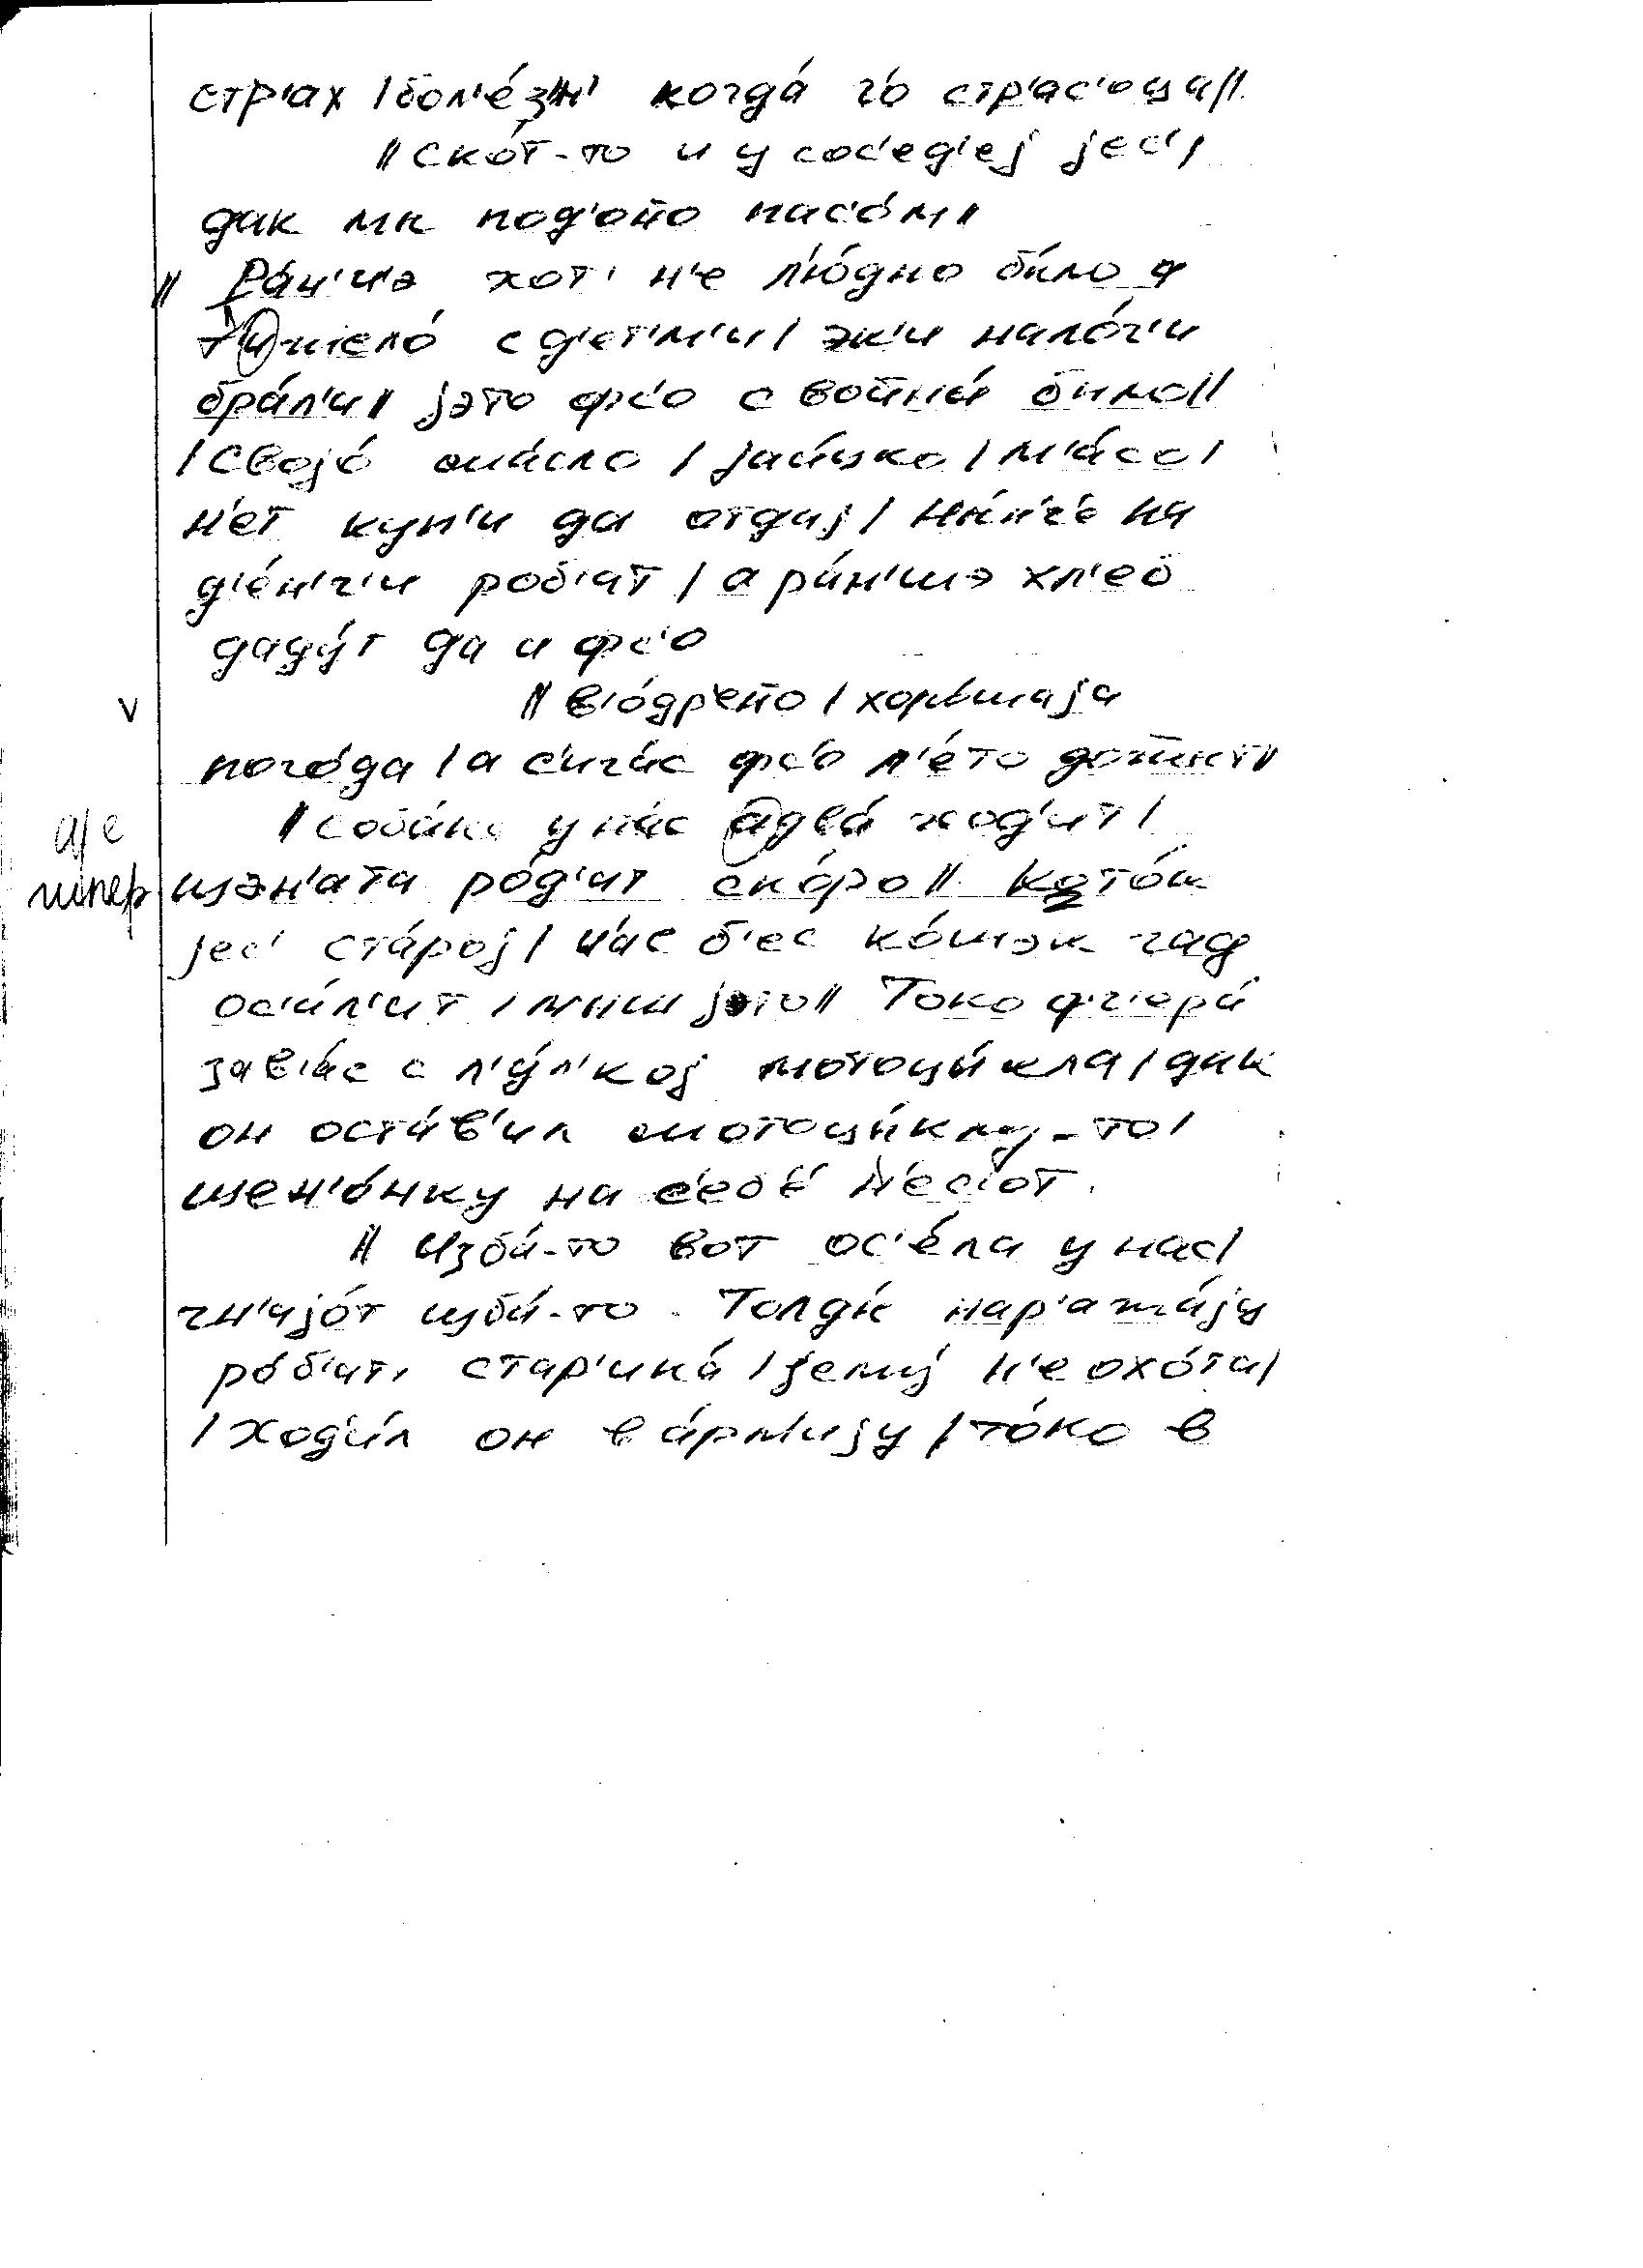 стр'ах / бол'е́з'н' когда́ ч'о стр'ас'о́ца //
// Ско́т-то и у сос'ед'еj jес' /
дак мы под'о́но пас'о́м //
// Ра́н'шэ хот' н'е л'у́дно бы́ло а
т'ижело́ с д'ет'м'и / эк'и нало́г'и
бра́л'и // jэто фс'о с войны́ было //
/ Своjо́ ма́сло / jаи́цко / м'а́со /
н'ет куп'и да отдаj / ны́н'ч'е на
д'е́н'г'и роб'ат / а ра́н'шэ хл'еб
даду́т да и фс'о
V // в'о́др'ено / хоро́шаjа
пого́да / а с'ича́с фс'о л'е́то дожжы́т //
а/е // соба́ка у нас адва́ ход'ит /
шпер щэн'а́та ро́д'ат ско́ро // Кото́к
jес' ста́роj / нас б'ес ко́шэк гад
ос'а́л'ит / мыш jэто // Токо фч'ера́
зав'а́с с л'у́л'коj мотоцы́кла / дак
он оста́в'ил мотоцы́клу-то /
щен'о́нку на с'еб'е́ н'ес'от.
// Изба́-то вот ос'е́ла у нас /
гн'иjо́т изба́-то. Толды́ нар'ажа́jу
ро́б'ат' стар'ика́ / jему́ н'е охо́та /
/ Ход'и́л он в а́рм'иjу / то́ко в